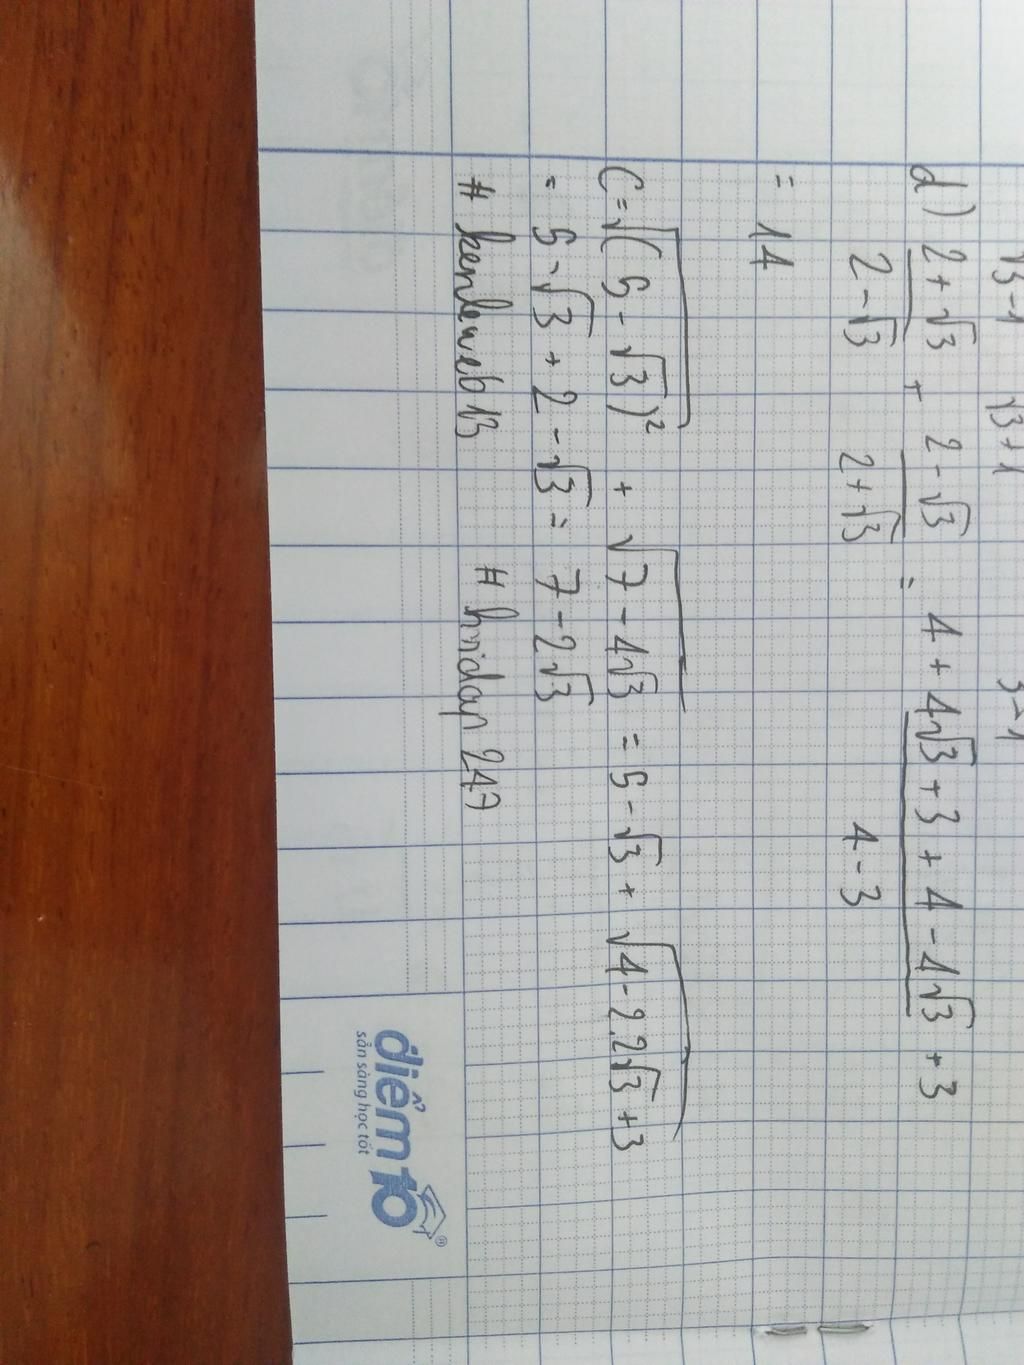 √3-1 √3+1 3-1
d) 2+√3 + 2-√3 = 4+4√3+3+4-4√3+3
2-√3 2+√3 4-3
= 14
C=√(5-√3)² + √7-4√3 = 5-√3 + √4-2.2√3+3
= 5-√3+2-√3 = 7-2√3
# kenleweb13 # hoidap 247
điểm10®
sẵn sàng học tốt